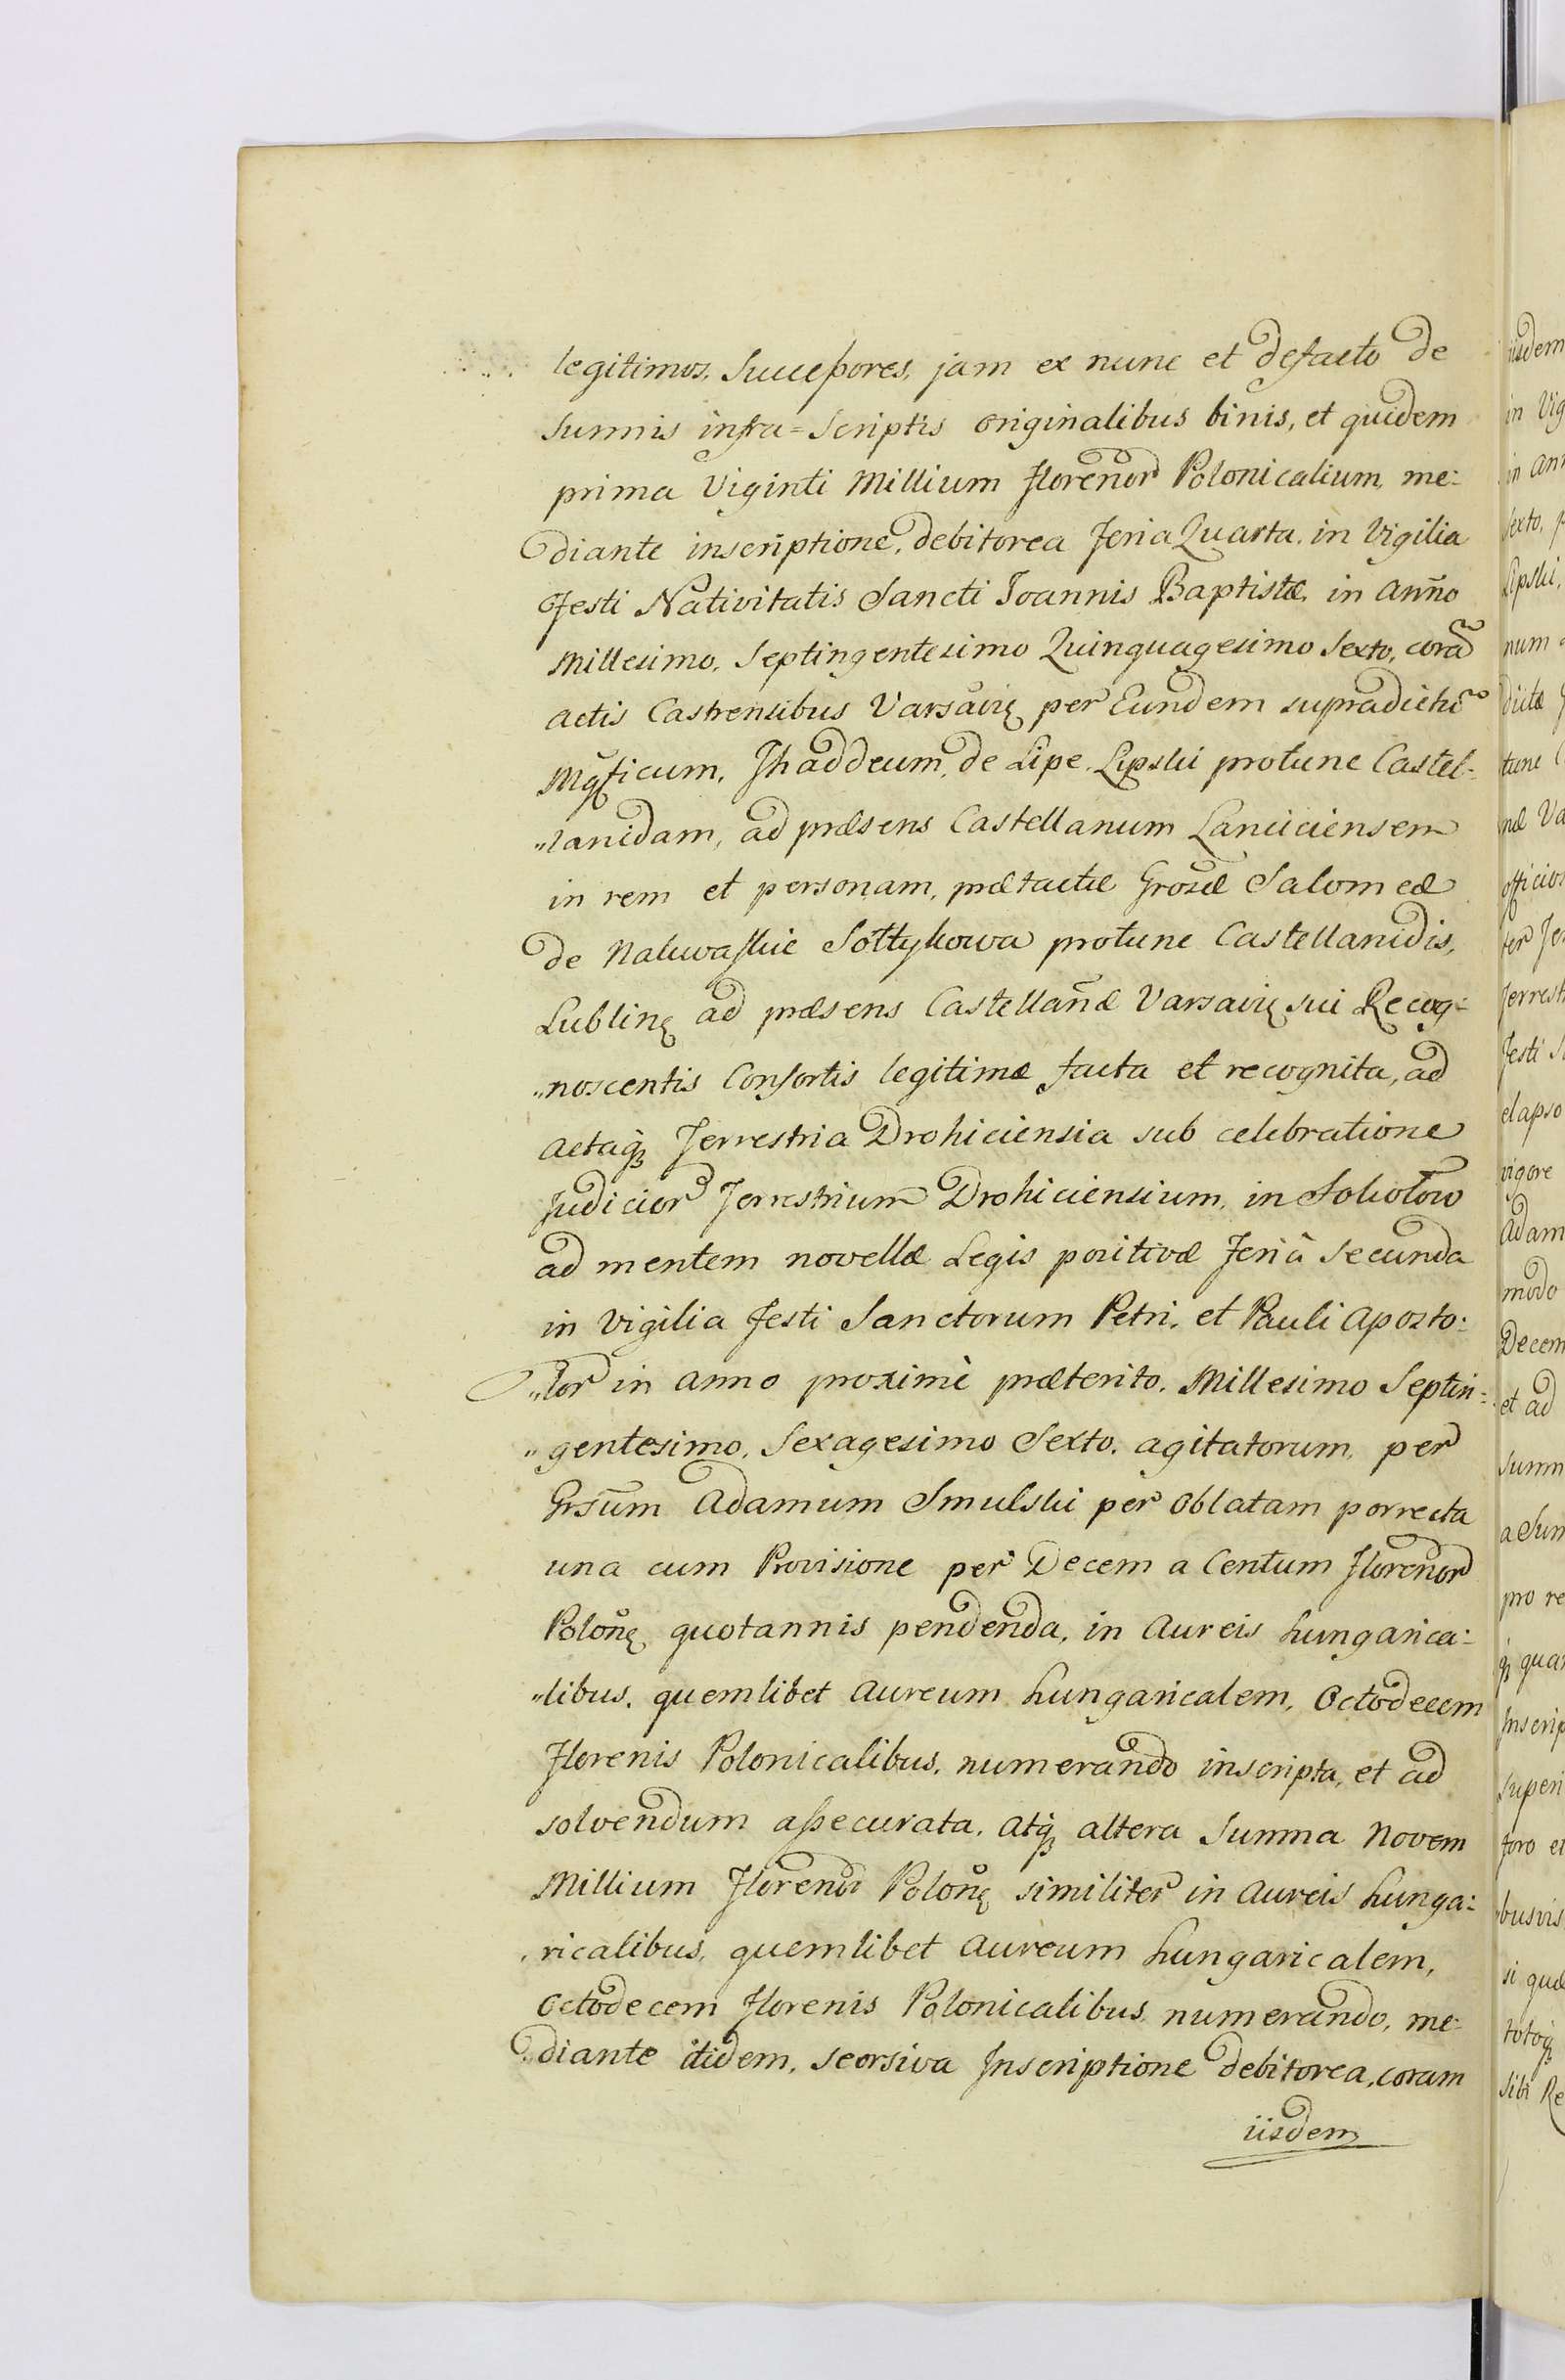 legitimos, Successores, jam ex nunc et defacto de
summis infra=scriptis originalibus binis, et quidem
prima Viginti Millium Florenor Polonicalium, me:
diante inscriptione, debitorea Feria Quarta, in Vigilia
Festi Nativitatis Sancti Joannis Baptistæ, in Anno
Millesimo, Septingentesimo Quinquagesimo Sexto, corã
Actis Castrensibus Varsavię per Eundem supradictũ
Mgficum, Thaddeum, de Lipe, Lipski protunc Castel:
„lanidam, ad præsens Castellanum Lanciciensem
in rem et personam, prætactæ Grosæ Salomeæ
de Nakwaskie Sołtykowa protunc Castellanidis,
Lublinę ad præsens Castellanæ Varsavię sui Recog:
„noscentis Consortis legitimæ facta et recognita, ad
Actaqꝫ Terrestria Drohiciensia sub celebratione
Judicior Terrestrium Drohiciensium, in Sokołow
ad mentem novellæ Legis positivæ Feriâ Secunda
in Vigilia Festi Sanctorum Petri, et Pauli Aposto:
„lor in anno proximè præterito, Millesimo Septin:
„gentesimo, Sexagesimo Sexto, agitatorum, per
Grsum Adamum Smulski per Oblatam porrecta
una cum Provisione per Decem a Centum Florenor
Polonę quotannis pendenda, in Aureis hungarica:
„libus, quemlibet Aureum hungaricalem, Octodecem
Florenis Polonicalibus, numerando inscripta, et ad
solvendum assecurata, Atqꝫ altera Summa Novem
Millium Florenor Polonę similiter in Aureis hunga:
„ricalibus, quemlibet Aureum hungaricalem,
Octodecem Florenis Polonicalibus numerando, me:
„diante itidem, seorsiva Inscriptione debitorea, coram
iisdem
iisdem
in Vig
in Ann
Sexto, p
Lipski,
num
dictæ
tunc C
næ Va
officios
ter Fer
Terrest
Festi S
elapso
vigore
Adam
modo
Decem
et ad
Summ
a Sum
pro re
qꝫ quar
Inscrip
superi
foro et
busvis
si quæ
totoqꝫ
sibi Re